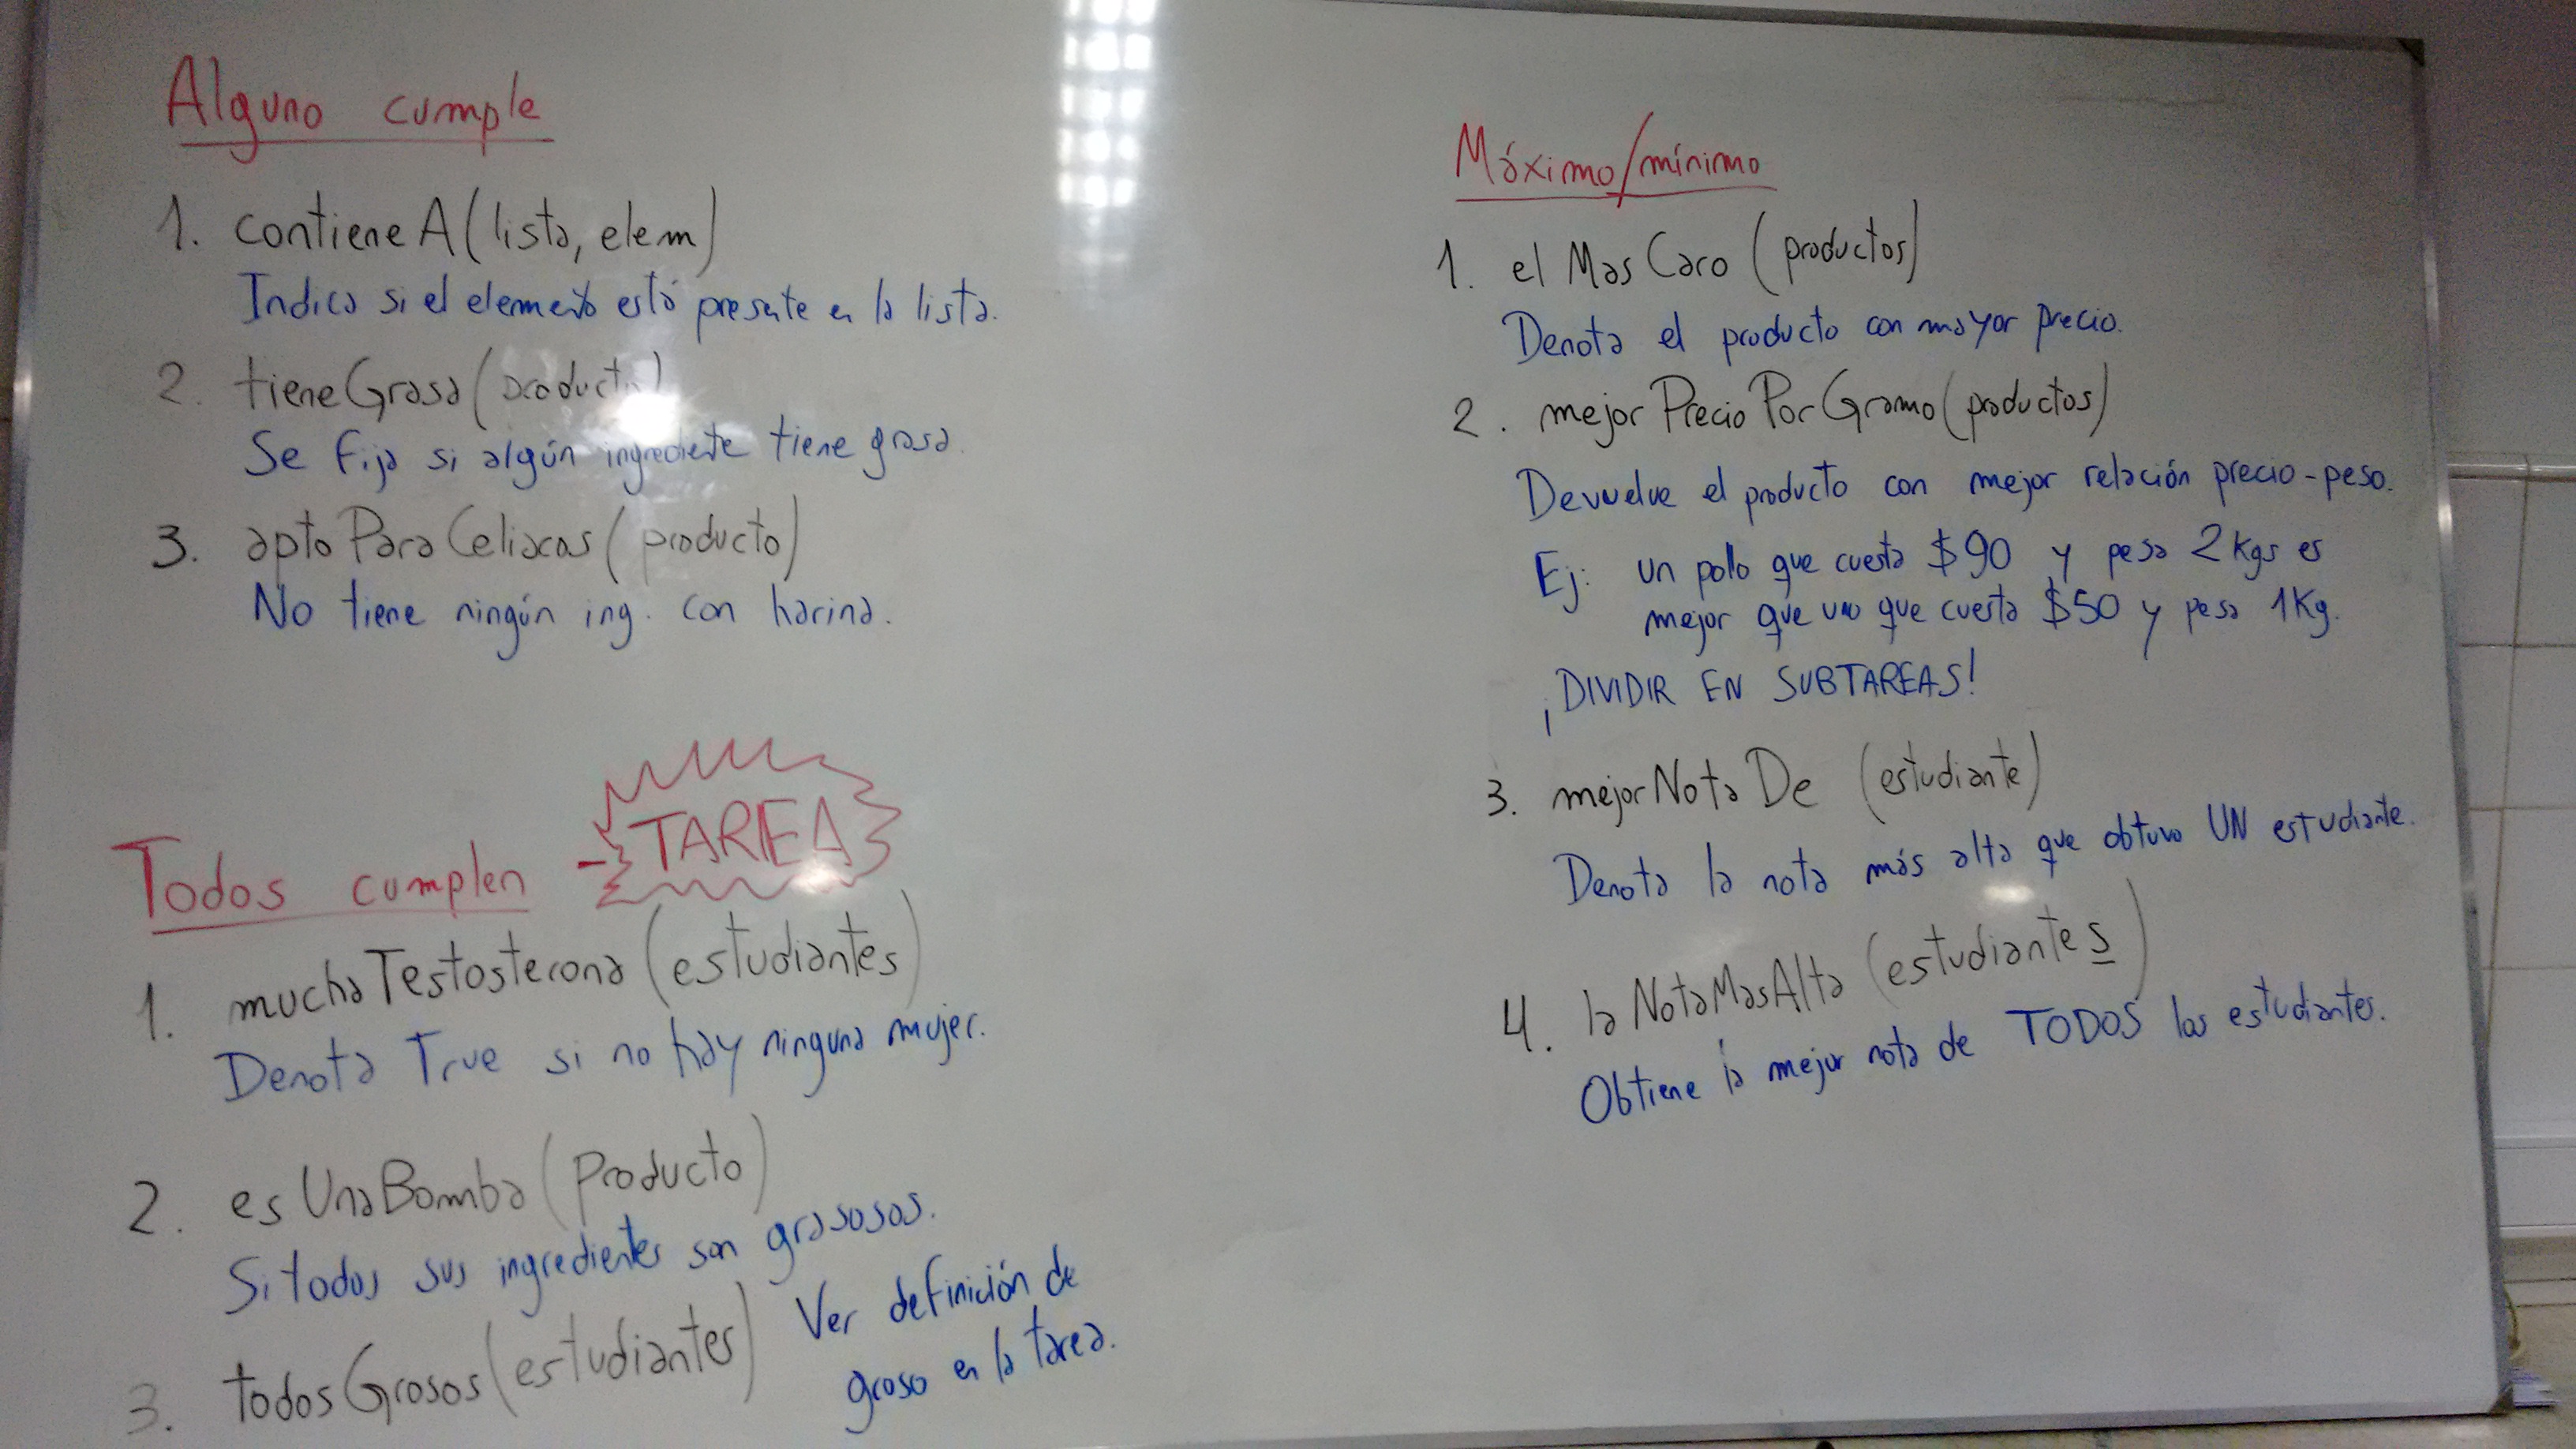 Alguno cumple
1. contieneA(lista, elem)
Indica si el elemento está presente en la lista.
2. tieneGrasa(producto)
Se fija si algún ingrediente tiene grasa.
3. aptoParaCeliacos(producto)
No tiene ningún ing. con harina.
Todos cumplen - TAREA
1. muchaTestosterona(estudiantes)
Denota True si no hay ninguna mujer.
2. esUnaBomba(producto)
Si todos sus ingredientes son grasosos.
3. todosGrosos(estudiantes) Ver definición de
groso en la tarea.
Máximo/mínimo
1. elMasCaro(productos)
Denota el producto con mayor precio.
2. mejorPrecioPorGramo(productos)
Devuelve el producto con mejor relación precio-peso.
Ej: un pollo que cuesta $90 y pesa 2kgs es
mejor que uno que cuesta $50 y pesa 1Kg.
¡DIVIDIR EN SUBTAREAS!
3. mejorNotaDe (estudiante)
Denota la nota más alta que obtuvo UN estudiante.
4. laNotaMasAlta (estudiantes)
Obtiene la mejor nota de TODOS los estudiantes.